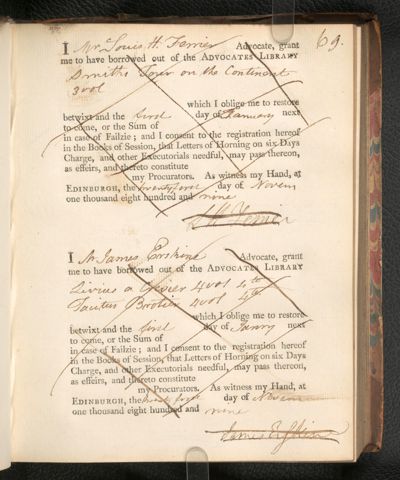 69.
I Mr Louis H. Ferrier Advocate, grant
me to have borrowed out of the ADVOCATES LIBRARY
Smiths Tour on the Continent
3 vol
which I oblige me to restore
betwixt and the first day of January next
to come, or the Sum of
in case of Failzie; and I consent to the registration hereof
in the Books of Session, that Letters of Horning on six Days
Charge, and other Executorials needful, may pass thereon,
as effeirs, and thereto constitute
my Procurators. As witness my Hand, at
EDINBURGH, the twenty first day of Novem
one thousand eight hundred and nine
L H Ferrier
I Mr James Erskine Advocate, grant
me to have borrowed out of the ADVOCATES LIBRARY
Livius a Crevier 4 vol 4to
Tacitus Brotier 4 vol 4to
which I oblige me to restore
betwixt and the first day of Janry next
to come, or the Sum of
in case of Failzie; and I consent to the registration hereof
in the Books of Session, that Letters of Horning on six Days
Charge, and other Executorials needful, may pass thereon,
as effeirs, and thereto constitute
my Procurators. As witness my Hand, at
EDINBURGH, the twenty first day of Novem
one thousand eight hundred and nine
James Erskine